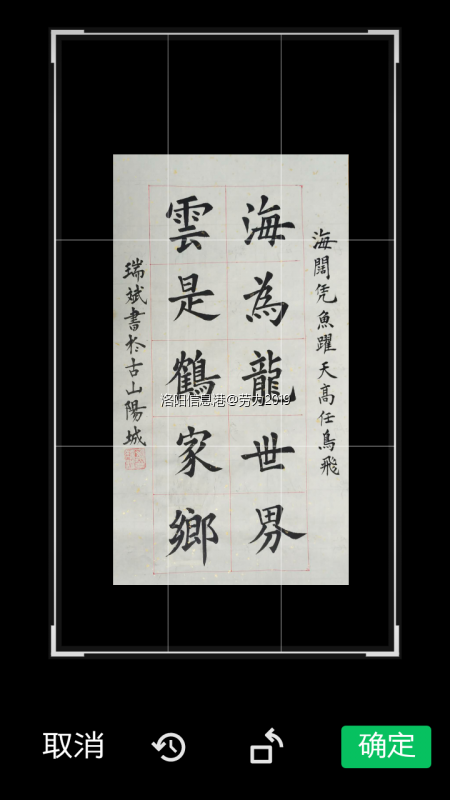 海闊凭魚躍天高任鳥飛
海為龍世界
雲是鶴家鄉
瑞斌書於古山陽城
洛阳信息港@劳力2019
取消
确定